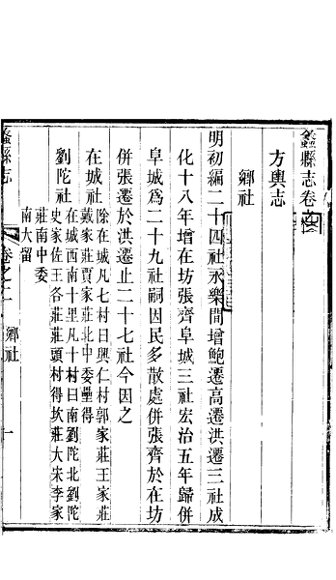 蠡縣志卷之二
方輿志
鄉社
明初編二十四社永樂間增鮑遷高遷洪遷三社成
化十八年增在坊張齊阜城三社宏治五年歸併
阜城爲二十九社嗣因民多散處併張齊於在坊
併張遷於洪遷止二十七社今因之
在城社
除在城凡七村曰興仁村郭家莊王家莊
戴家莊賈家莊北中委壘得
劉陀社
在城西南十里凡十村曰南劉陀北劉陀
史家佐王各莊莊頭村得坎莊大宋李家
莊南中委
南大留
蠡縣志
卷之二
鄉社
一